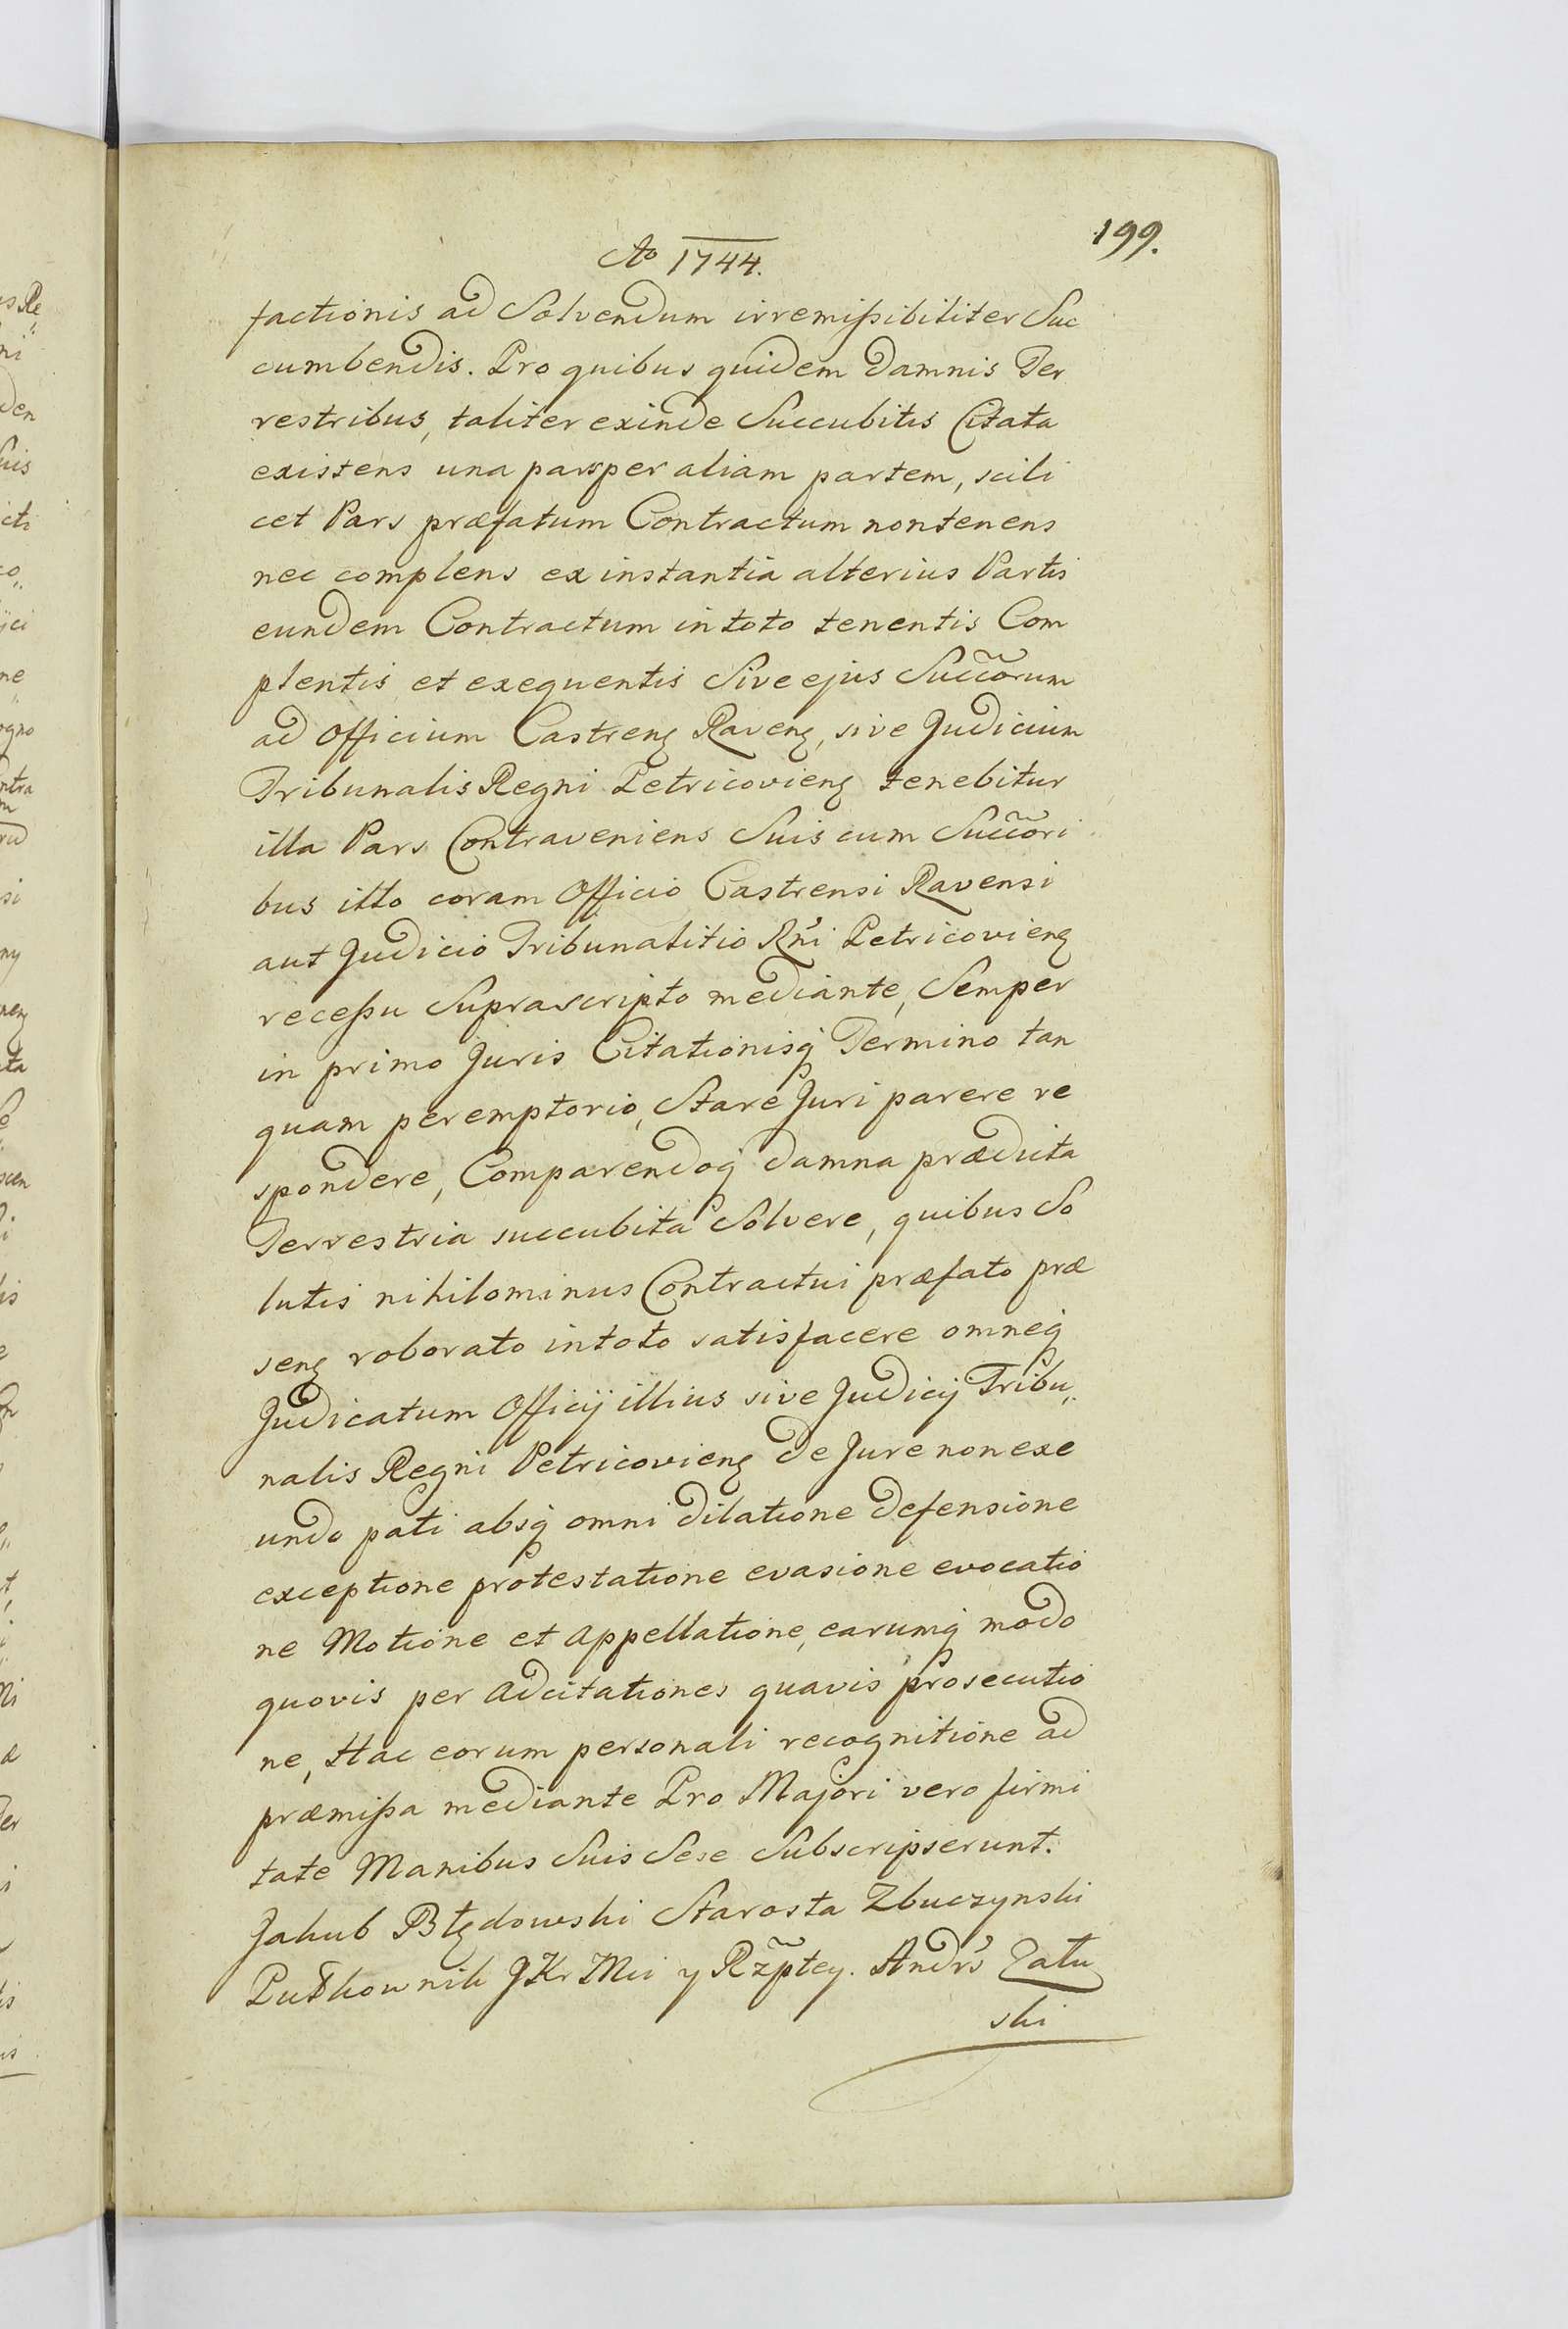 199.
Ao 1744.
factionis ad Solvendum irremißibiliter Suc
cumbendis. Pro quibus quidem damnis Ter
restribus, taliter exinde Succubitis Citata
existens una pars per aliam partem, scili
cet Pars præfatum Contractum non tenens
nec complens ex instantia alterius Partis
eundem Contractum in toto tenentis Com
plentis et exequentis Sive ejus Succõrum
ad Officium Castrenȝ Ravenȝ, sive Judicium
Tribunalis Regni Petricovienȝ tenebitur
illa Pars Contraveniens Suis cum Succõri
bus illo coram Officio Castrensi Ravensi
aut Judicio Tribunalitio Rni Petricovienȝ
receßu Suprascripto mediante, Semper
in primo Juris Citationisq̃ Termino tan
quam peremptorio, Stare Juri parere re
spondere, Comparendoq̃ damna prædicta
Terrestria succubita Solvere, quibus So
lutis nihilominus Contractui præfato præ
senȝ roborato in toto satisfacere omneq̃
Judicatum Officij illius sive Judicij Tribu„
nalis Regni Petricovienȝ de Jure non exe
undo pati absq̃ omni dilatione defensione
exceptione protestatione evasione evocatio
ne Motione et Appellatione, earumq̃ modo
quovis per Adcitationes quavis prosecutio
ne, Hac eorum personali recognitione ad
præmißa mediante Pro Majori vero firmi
tate Manibus Suis Sese Subscripserunt.
Jakub Błędowski Starosta Zbuczynski
Pułkownik JKr Mci y Rzptey. Andrs Zału
ski